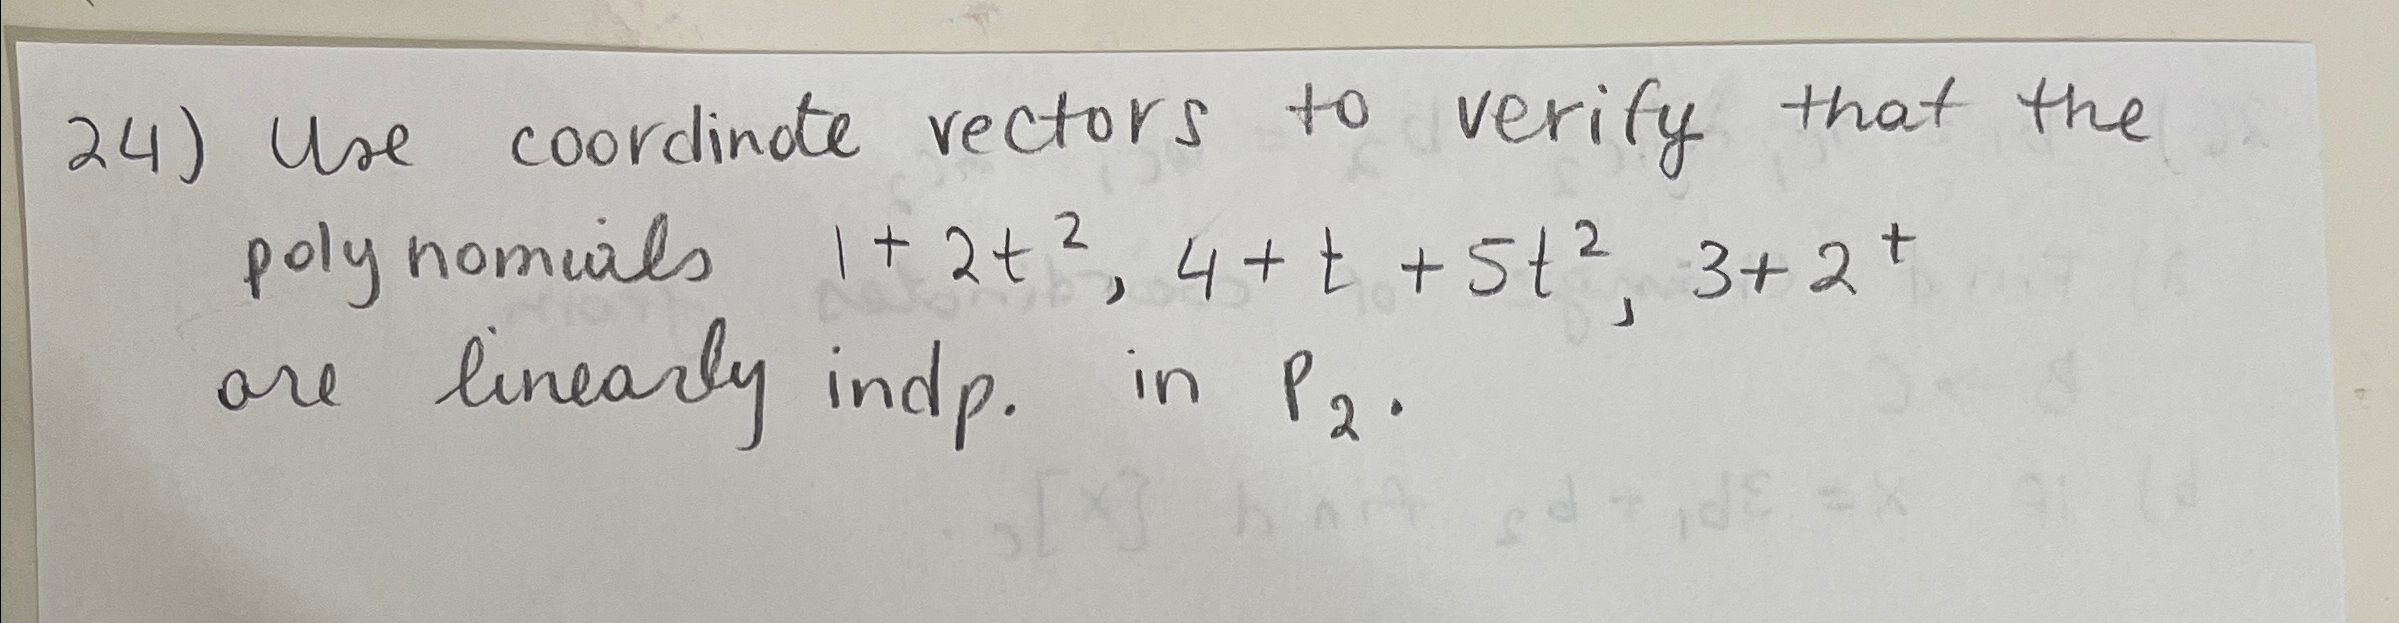 24) Use coordinate vectors to verify that the
polynomials 1 + 2t², 4 + t + 5t², 3 + 2^t
are linearly indp. in P₂.